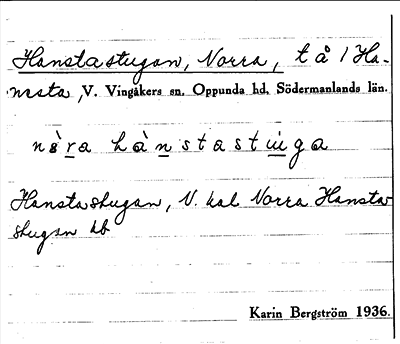 Hanstastugan, Norra, t å 1 Ha-
nesta, V. Vingåkers sn. Oppunda hd. Södermanlands län.
nòra hànstastùga
Hanstastugan, N. kal Norra Hansta-
stugan hb
Karin Bergström 1936.